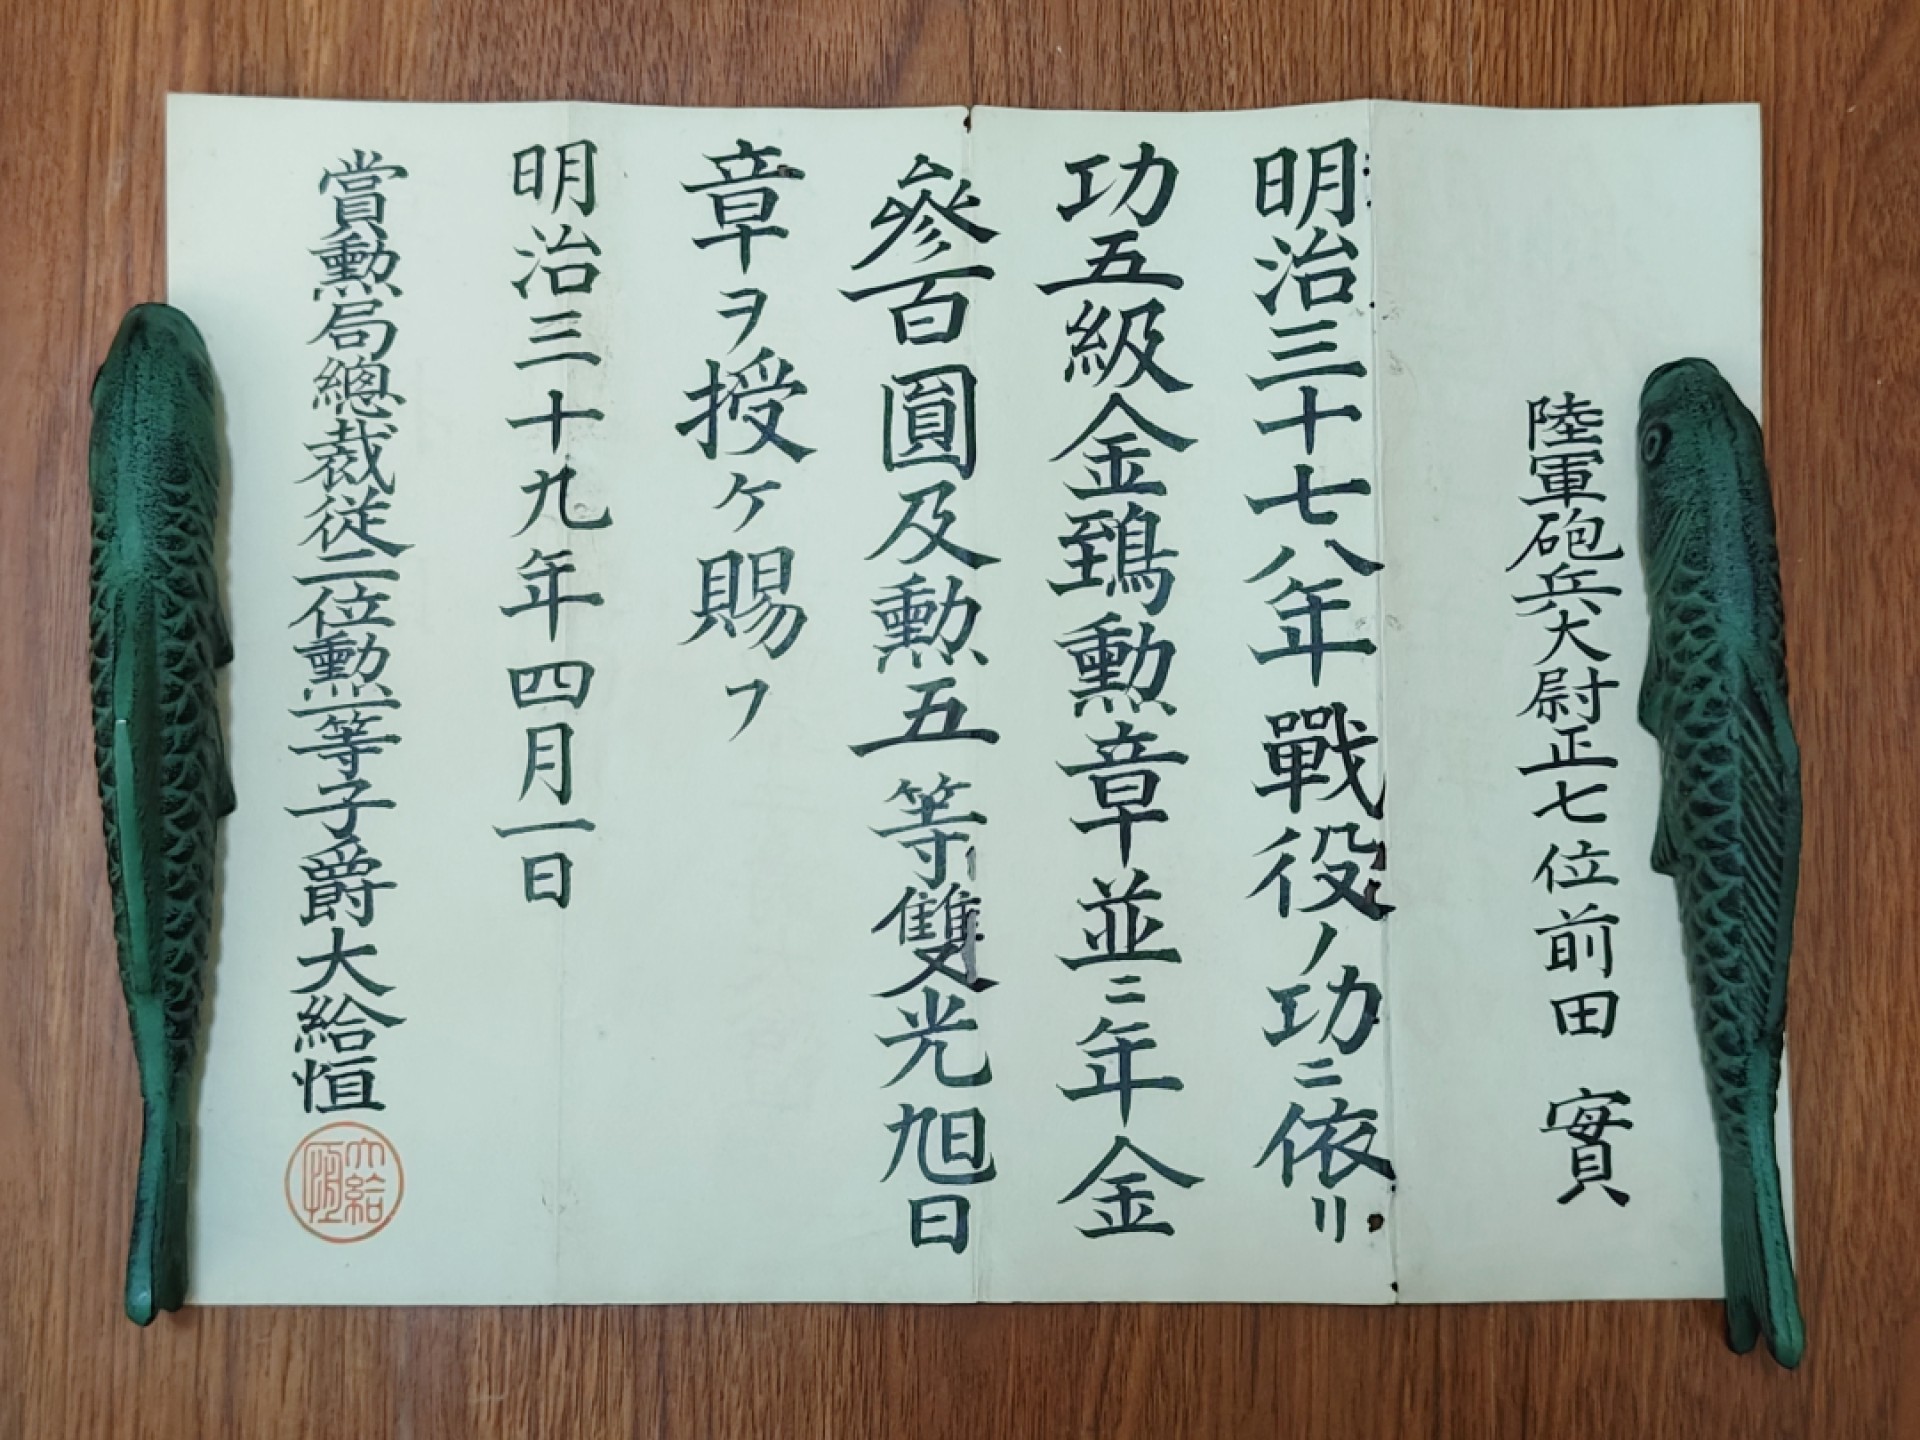 陸軍砲兵大尉正七位前田 實
明治三十七八年戰役ノ功ニ依リ
功五級金鵄勲章並ニ年金
參百圓及勲五等雙光旭日
章ヲ授ケ賜フ
明治三十九年四月一日
賞勲局總裁従二位勲一等子爵大給恒
大給